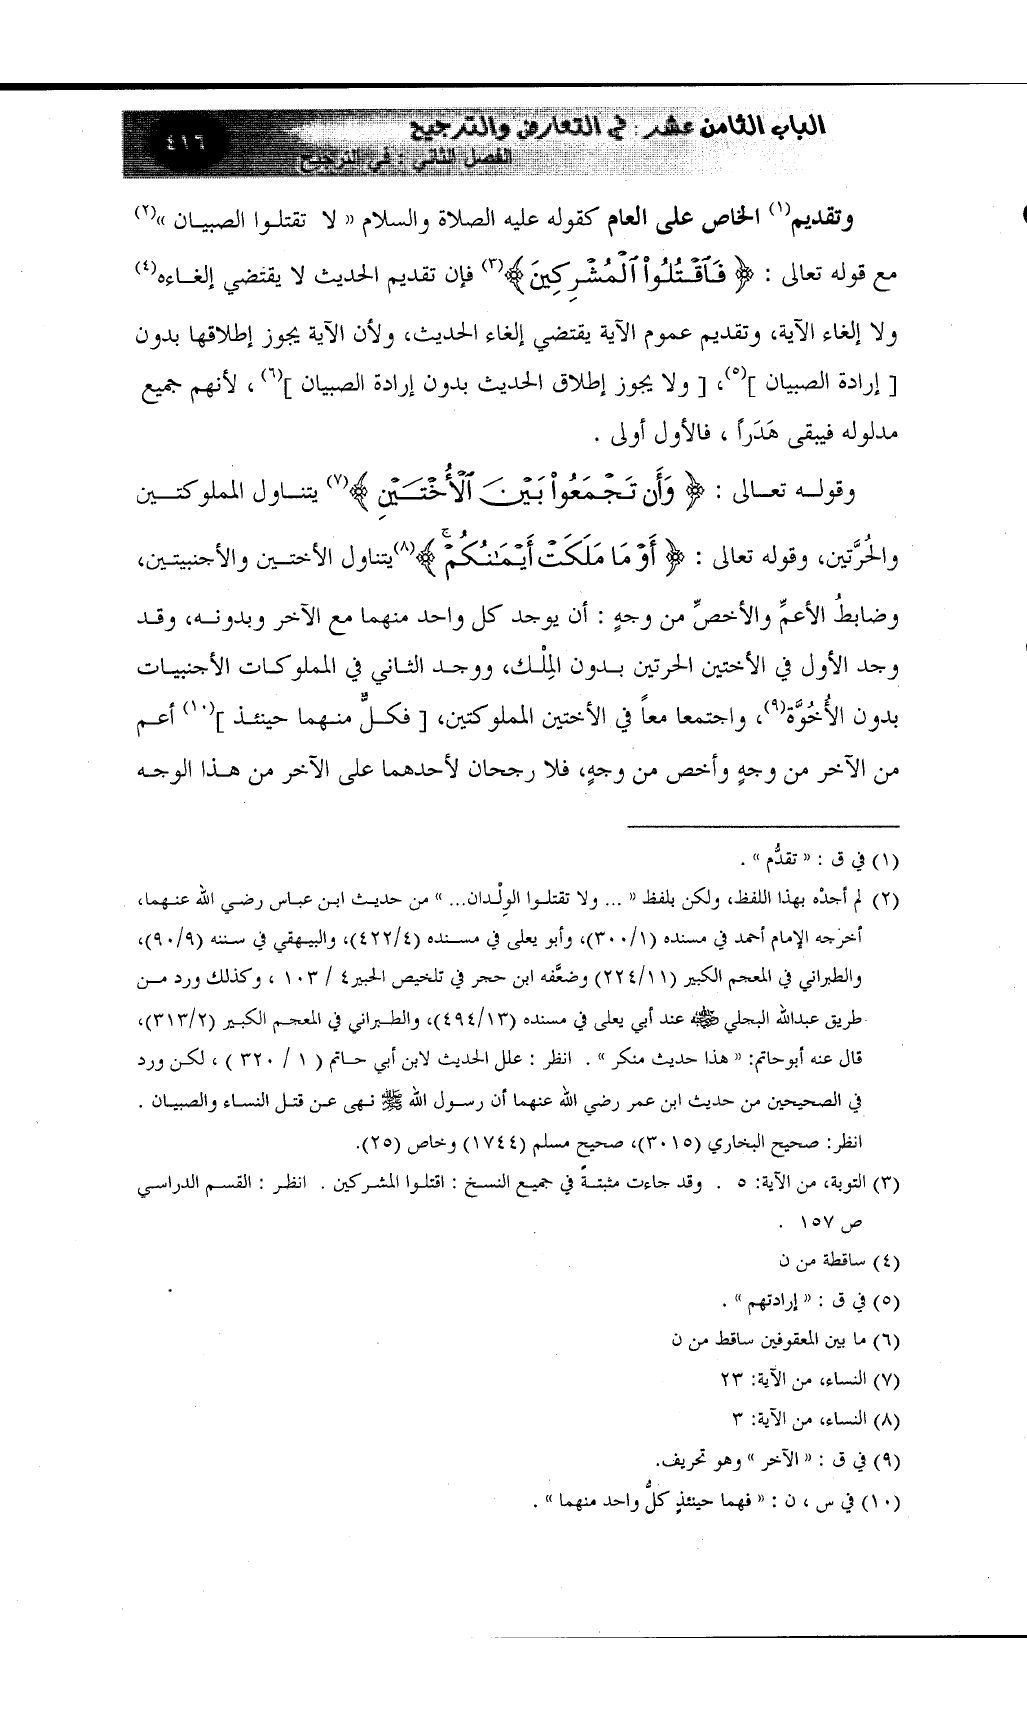 الباب الثامن عشر : في التعارض والترجيح
٤١٦
الفصل الثاني : في الترجيح
وتقديم(١) الخاص على العام كقوله عليه الصلاة والسلام « لا تقتلوا الصبيان »(٢)
مع قوله تعالى : ﴿ فَٱقْتُلُوا۟ ٱلْمُشْرِكِينَ ﴾(٣) فإن تقديم الحديث لا يقتضي إلغاءه(٤)
ولا إلغاء الآية، وتقديم عموم الآية يقتضي إلغاء الحديث، ولأن الآية يجوز إطلاقها بدون
[ إرادة الصبيان ](٥)، [ ولا يجوز إطلاق الحديث بدون إرادة الصبيان ](٦) ، لأنهم جميع
مدلوله فيبقى هَدَراً ، فالأول أولى .
وقوله تعالى : ﴿ وَأَن تَجْمَعُوا۟ بَيْنَ ٱلْأُخْتَيْنِ ﴾(٧) يتناول المملوكتين
والحُرَّتين، وقوله تعالى : ﴿ أَوْ مَا مَلَكَتْ أَيْمَـٰنُكُمْ ۚ ﴾(٨) يتناول الأختين والأجنبيتين،
وضابطُ الأعمِّ والأخصِّ من وجهٍ : أن يوجد كل واحد منهما مع الآخر وبدونه، وقد
وجد الأول في الأختين الحرتين بدون المِلْك، ووجد الثاني في المملوكات الأجنبيات
بدون الأُخُوَّة(٩)، واجتمعا معاً في الأختين المملوكتين، [ فكلٌّ منهما حينئذ ](١٠) أعم
من الآخر من وجهٍ وأخص من وجهٍ، فلا رجحان لأحدهما على الآخر من هذا الوجه
(١) في ق : « تقدُّم » .
(٢) لم أجدْه بهذا اللفظ، ولكن بلفظ « ... ولا تقتلوا الوِلْدان... » من حديث ابن عباس رضي الله عنهما،
أخرجه الإمام أحمد في مسنده (٣٠٠/١)، وأبو يعلى في مسنده (٤٢٢/٤)، والبيهقي في سننه (٩٠/٩)،
والطبراني في المعجم الكبير (٢٢٤/١١) وضعَّفه ابن حجر في تلخيص الحبير٤ / ١٠٣ ، وكذلك ورد من
طريق عبدالله البجلي ﷺ عند أبي يعلى في مسنده (٤٩٤/١٣)، والطبراني في المعجم الكبير (٣١٣/٢)،
قال عنه أبوحاتم: « هذا حديث منكر » . انظر : علل الحديث لابن أبي حاتم ( ١ / ٣٢٠ ) ، لكن ورد
في الصحيحين من حديث ابن عمر رضي الله عنهما أن رسول الله ﷺ نهى عن قتل النساء والصبيان .
انظر: صحيح البخاري (٣٠١٥)، صحيح مسلم (١٧٤٤) وخاص (٢٥).
(٣) التوبة، من الآية: ٥ . وقد جاءت مثبتةً في جميع النسخ : اقتلوا المشركين . انظر : القسم الدراسي
ص ١٥٧ .
(٤) ساقطة من ن
(٥) في ق : « إرادتهم » .
(٦) ما بين المعقوفين ساقط من ن
(٧) النساء، من الآية: ٢٣
(٨) النساء، من الآية: ٣
(٩) في ق : « الآخر » وهو تحريف.
(١٠) في س ، ن : « فهما حينئذٍ كلُّ واحد منهما » .